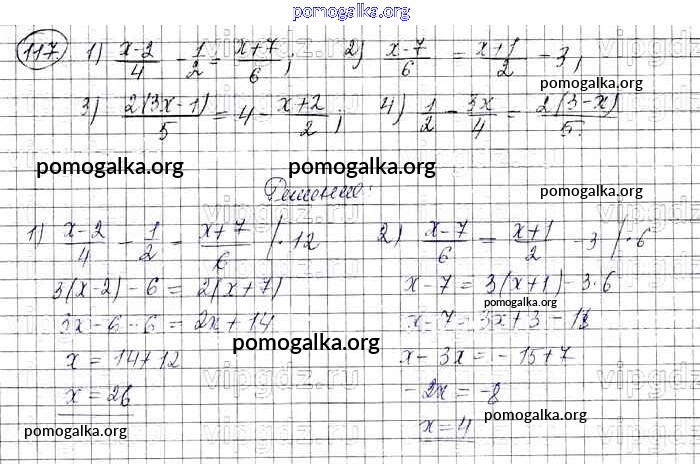 pomogalka.org
117. 1) (x-2)/4 - 1/2 = (x+7)/6; 2) (x-7)/6 = (x+1)/2 - 3;
pomogalka.org
3) 2(3x-1)/5 = 4 - (x+2)/2; 4) 1/2 - 3x/4 = 2(3-x)/5.
pomogalka.org pomogalka.org
pomogalka.org
Решение:
1) (x-2)/4 - 1/2 = (x+7)/6 /·12
3(x-2) - 6 = 2(x+7)
3x - 6 - 6 = 2x + 14
x = 14+12
x = 26
pomogalka.org
2) (x-7)/6 = (x+1)/2 - 3 /·6
x-7 = 3(x+1) - 3·6
pomogalka.org
x-7 = 3x+3 - 18
pomogalka.org
x - 3x = -15+7
-2x = -8
x = 4
pomogalka.org
vipgdz.ru